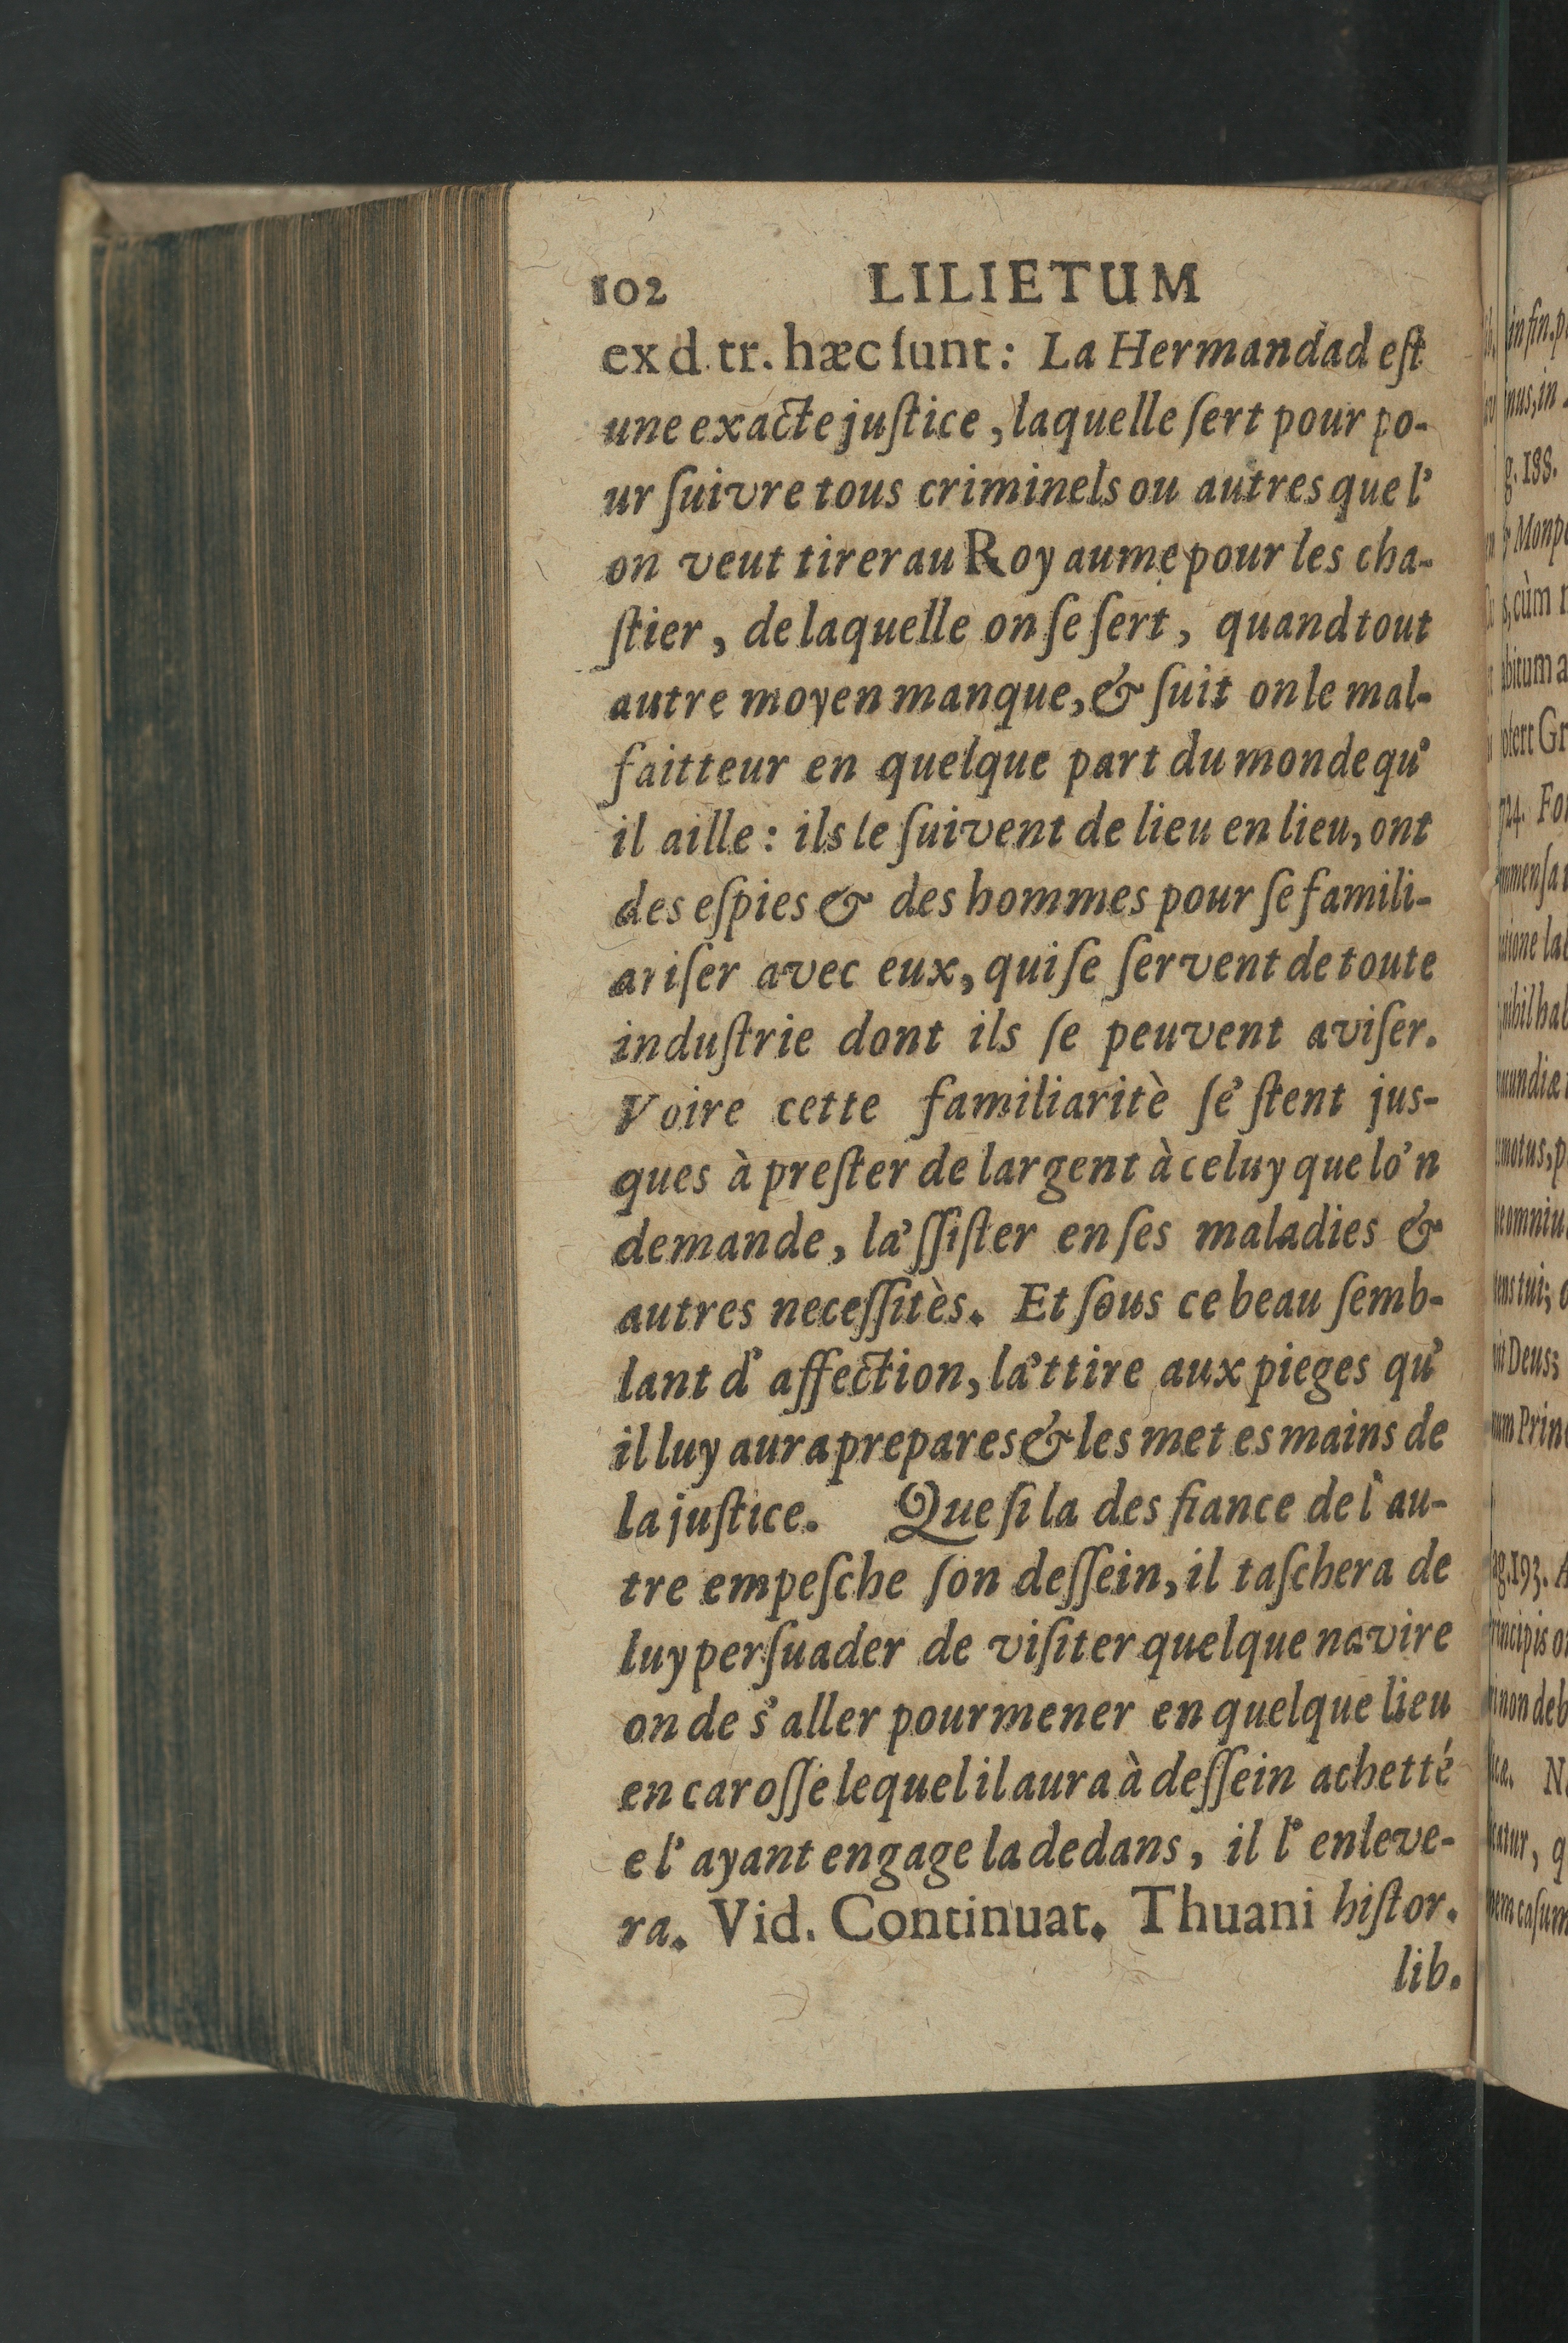 102 LILIETUM
ex d. tr. hæc sunt: La Hermandad eſt
une exacte juſtice, laquelle ſert pour po-
ur ſuivre tous criminels ou autres que l'
on veut tirer au Royaume pour les cha-
ſtier, de laquelle on ſe ſert, quand tout
autre moyen manque, & ſuit on le mal-
faitteur en quelque part du monde qu'
il aille: ils le ſuivent de lieu en lieu, ont
des eſpies & des hommes pour ſe famili-
ariſer avec eux, qui ſe ſervent de toute
induſtrie dont ils ſe peuvent aviſer.
Voire cette familiaritè ſe'ſtent jus-
ques à preſter de largent à celuy que lo'n
demande, la'ſſiſter en ſes maladies &
autres neceſſitès. Et ſous ce beau ſemb-
lant d' affection, la'ttire aux pieges qu'
il luy aura prepares & les met es mains de
la juſtice. Que ſi la des fiance de l' au-
tre empeſche ſon deſſein, il taſchera de
luy perſuader de viſiter quelque navire
on de s'aller pourmener en quelque lieu
en caroſſe lequel il aura à deſſein achetté
e l' ayant engage la dedans, il l' enleve-
ra. Vid. Continuat. Thuani hiſtor.
lib.
in fin.
nus, in
g. 188.
Monp
s, cùm
bitum a
724.
Deus;
193.